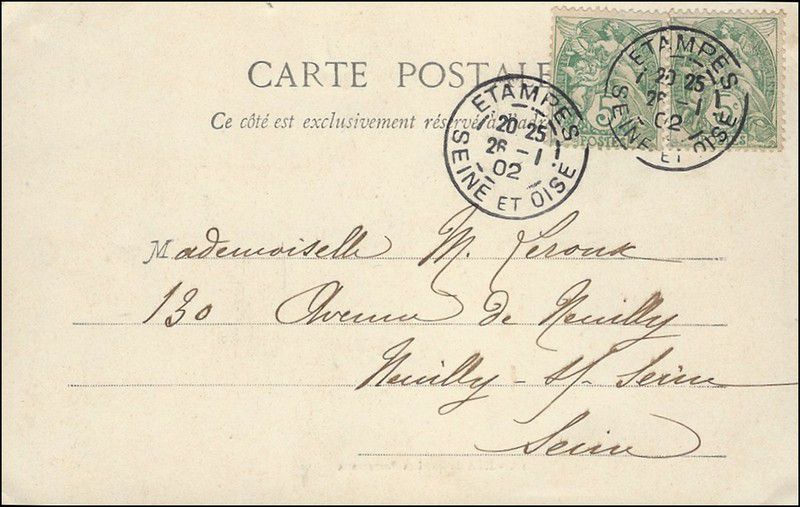 CARTE POSTALE
Ce côté est exclusivement réservé à
ETAMPES
20 25
26 - 1
02
SEINE ET OISE
5
POSTES
ETAMPES
20 25
26 - 1
02
SEINE ET OISE
Mademoiselle M. Leroux
130 Avenue de Neuilly
Neuilly - s/- Seine
Seine